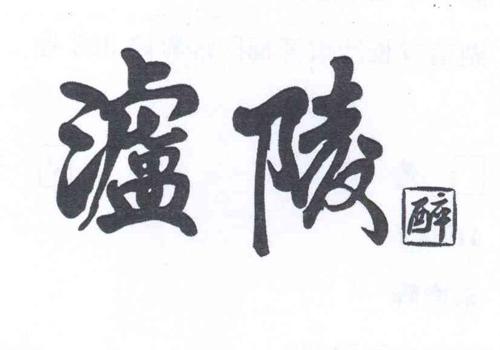 瀘陵醉